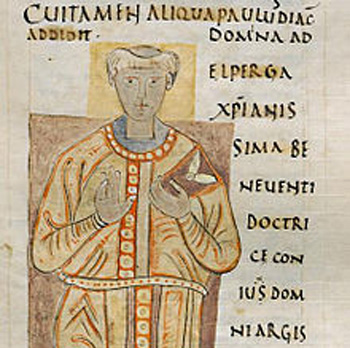 CUITAMEN ALIQUAPAULUSDIAC̄
ADDIDIT· DOMNA AD
ELPERGA
XP̄IANIS
SIMA BE
NEUENTI
DOCTRI
CE CON
IUS DOM
NI ARGIS